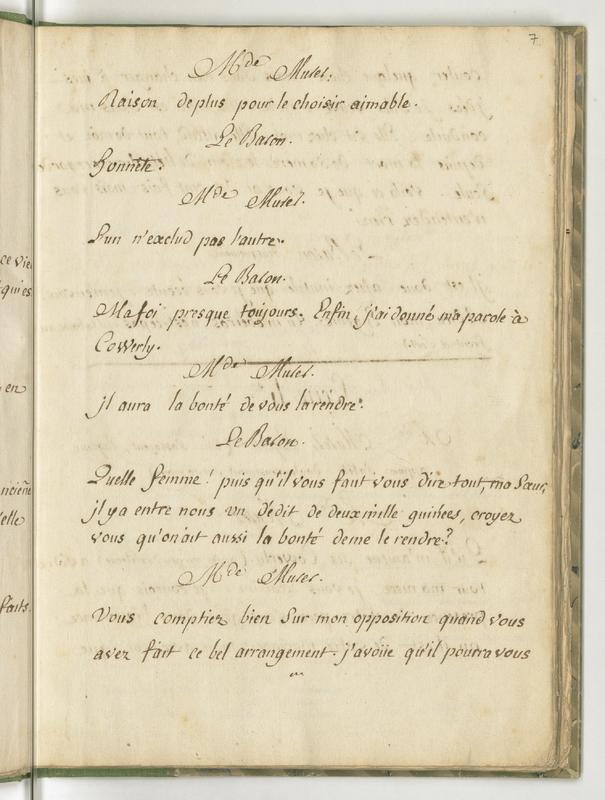 7
Mde Murer.
Raison deplus pour le choisir aimable.
Le Baron.
honnête.
Mde Murer.
L'un n'exclud pas l'autre.
Le Baron.
Mafoi presque toujours. Enfin, j'ai donné ma parole à
Cowerly.
Mde Murer.
jl aura la bonté de vous la rendre.
Le Baron.
Quelle femme! puis qu'il vous faut vous dire tout, ma Sœur,
jl y a entre nous un dédit de deux mille guinées, croyez
vous qu'on ait aussi la bonté de me le rendre?
Mde Murer.
Vous comptiez bien Sur mon opposition quand vous
avez fait ce bel arrangement. j'avoüe qu'il pourra vous
ce vie
qui es
en
ncienne
elle
faits.